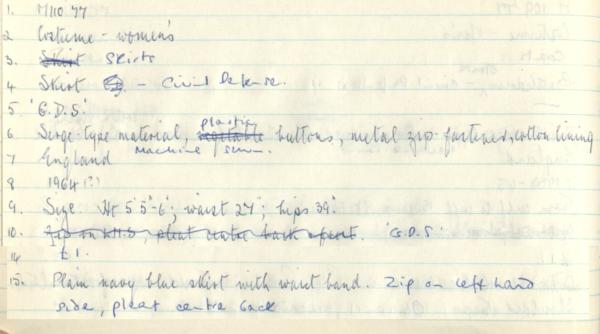 1. M110'77
2 Costume - women's
3. Skirt Skirts
4 Skirt - Civil Defense.
5 'G.D.S'
plastic
6 Serge-type material, buttons, metal zip-fastener, cotton lining
7 England Machine sewn.
8 1964(?)
9. Size Ht 5'5"-6"; waist 27"; hips 39".
10. Zip on L.H.S, pleat centre back & front. 'G.D.S'
14 £1.
15. Plain navy blue skirt with waist band. Zip on left hand
side, pleat centre back